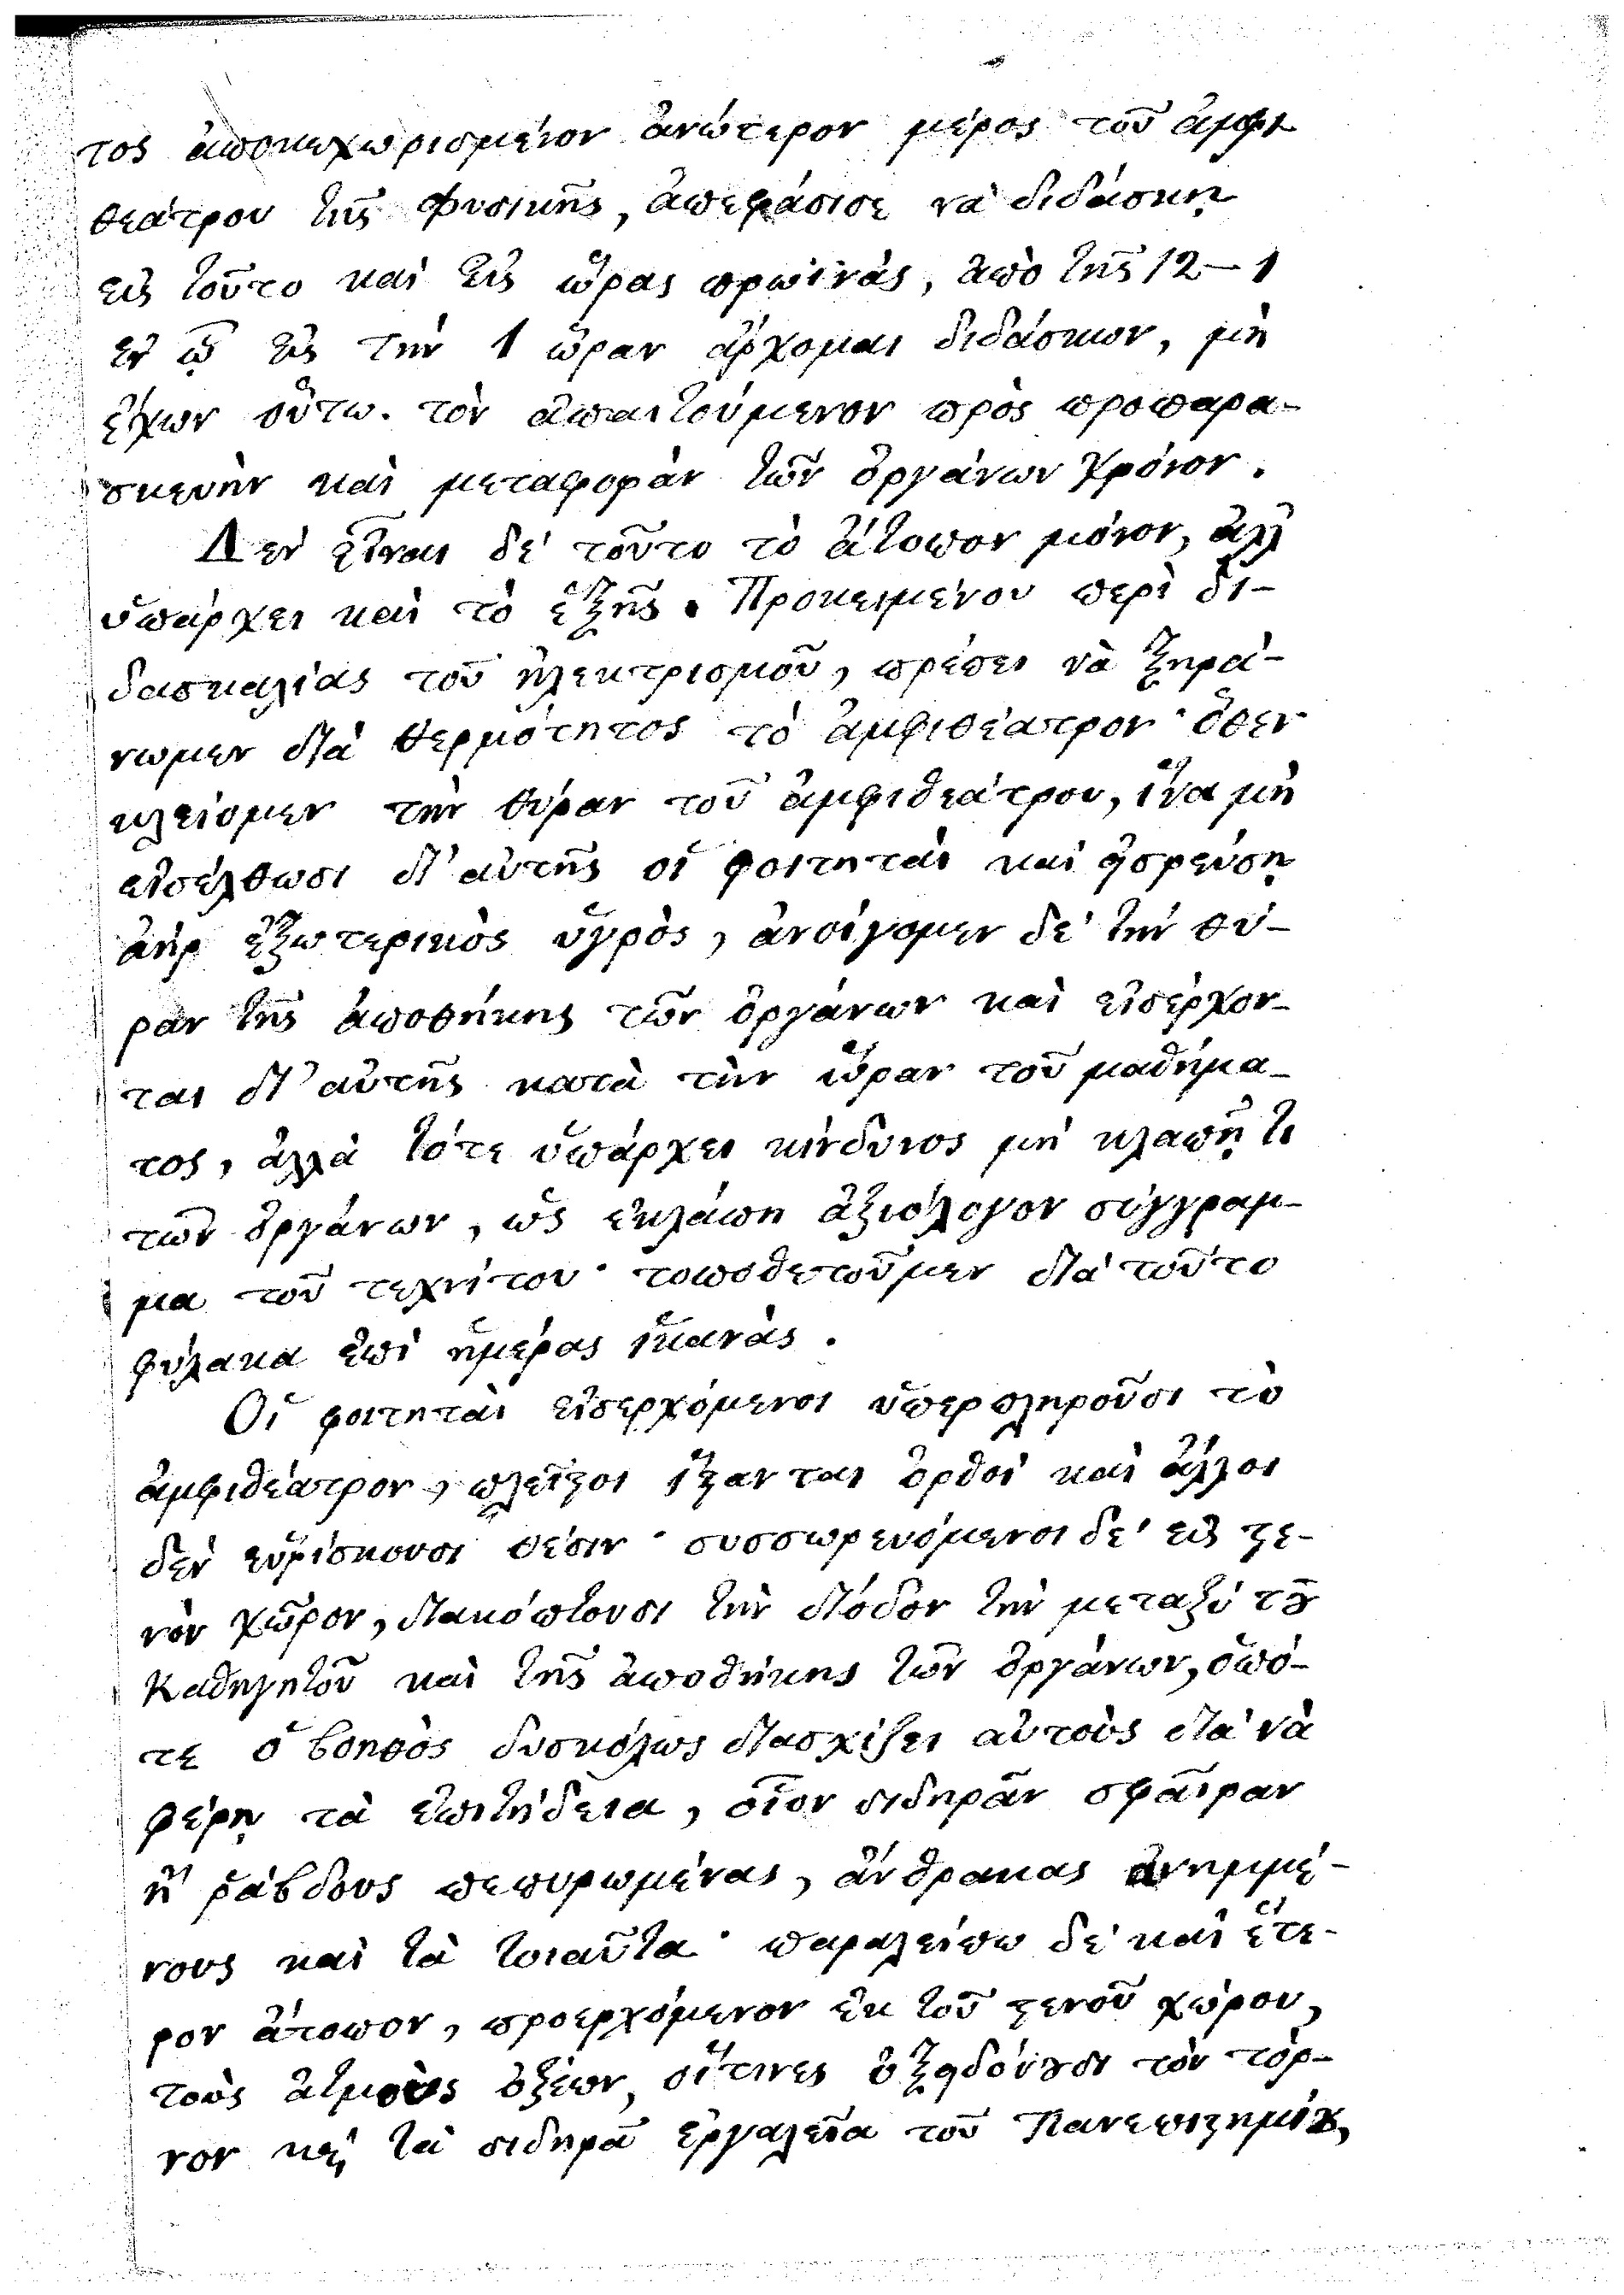 τος ἀποκεχωρισμένον ἀνώτερον μέρος τοῦ ἀμφι
θεάτρου τῆς Φυσικῆς, ἀπεφάσισε νὰ διδάσκῃ
εἰς τοῦτο καὶ εἰς ὥρας πρωϊνὰς, ἀπὸ τῆς 12–1
ἐν ᾧ εἰς τὴν 1 ὥραν ἄρχομαι διδάσκων, μὴ
ἔχων οὕτω. τὸν ἀπαιτούμενον πρὸς προπαρα-
σκευὴν καὶ μεταφορὰν τῶν ὀργάνων χρόνον.
Δὲν εἶναι δὲ τοῦτο τὸ ἄτοπον μόνον, ἀλλ
ὑπάρχει καὶ τὸ ἑξῆς. Προκειμένου περὶ δι-
δασκαλίας τοῦ ἠλεκτρισμοῦ, πρέπει νὰ ξηρά-
νωμεν διὰ θερμότητος τὸ ἀμφιθέατρον· ὅθεν
κλείομεν τὴν θύραν τοῦ ἀμφιθεάτρου, ἵνα μὴ
εἰσέλθωσι δι' αὐτῆς οἱ φοιτηταὶ καὶ εἰσρεύσῃ
ἀὴρ ἐξωτερικὸς ὑγρὸς, ἀνοίγομεν δὲ τὴν θύ-
ραν τῆς ἀποθήκης τῶν ὀργάνων καὶ εἰσέρχον-
ται δι' αὐτῆς κατὰ τὴν ὥραν τοῦ μαθήμα-
τος, ἀλλὰ τότε ὑπάρχει κίνδυνος μὴ κλαπῇ τι
τῶν ὀργάνων, ὡς ἐκλάπη ἀξιόλογον σύγγραμ-
μα τοῦ τεχνίτου· τοποθετοῦμεν διὰ τοῦτο
φύλακα ἐπὶ ἡμέρας ἱκανάς.
Οἱ φοιτηταὶ εἰσερχόμενοι ὑπερπληροῦσι τὸ
ἀμφιθέατρον, πλεῖστοι ἵστανται ὀρθοὶ καὶ ἄλλοι
δὲν εὑρίσκουσι θέσιν· συσσωρευόμενοι δὲ εἰς στε-
νὸν χῶρον, διακόπτουσι τὴν δίοδον τὴν μεταξὺ τοῦ
Καθηγητοῦ καὶ τῆς ἀποθήκης τῶν ὀργάνων, ὁπό-
τε ὁ βοηθὸς δυσκόλως διασχίζει αὐτοὺς διὰ νὰ
φέρῃ τὰ ἐπιτήδεια, οἷον σιδηρᾶν σφαῖραν
ἢ ῥάβδους πεπυρωμένας, ἄνθρακας ἀνημμέ-
νους καὶ τὰ τοιαῦτα· παραλείπω δὲ καὶ ἕτε-
ρον ἄτοπον, προερχόμενον ἐκ τοῦ στενοῦ χώρου,
τοὺς ἀτμοὺς ὀξέων, οἵτινες ὀξειδοῦσι τὸν τόρ-
νον καὶ τὰ σιδηρᾶ ἐργαλεῖα τοῦ Πανεπιστημίου,